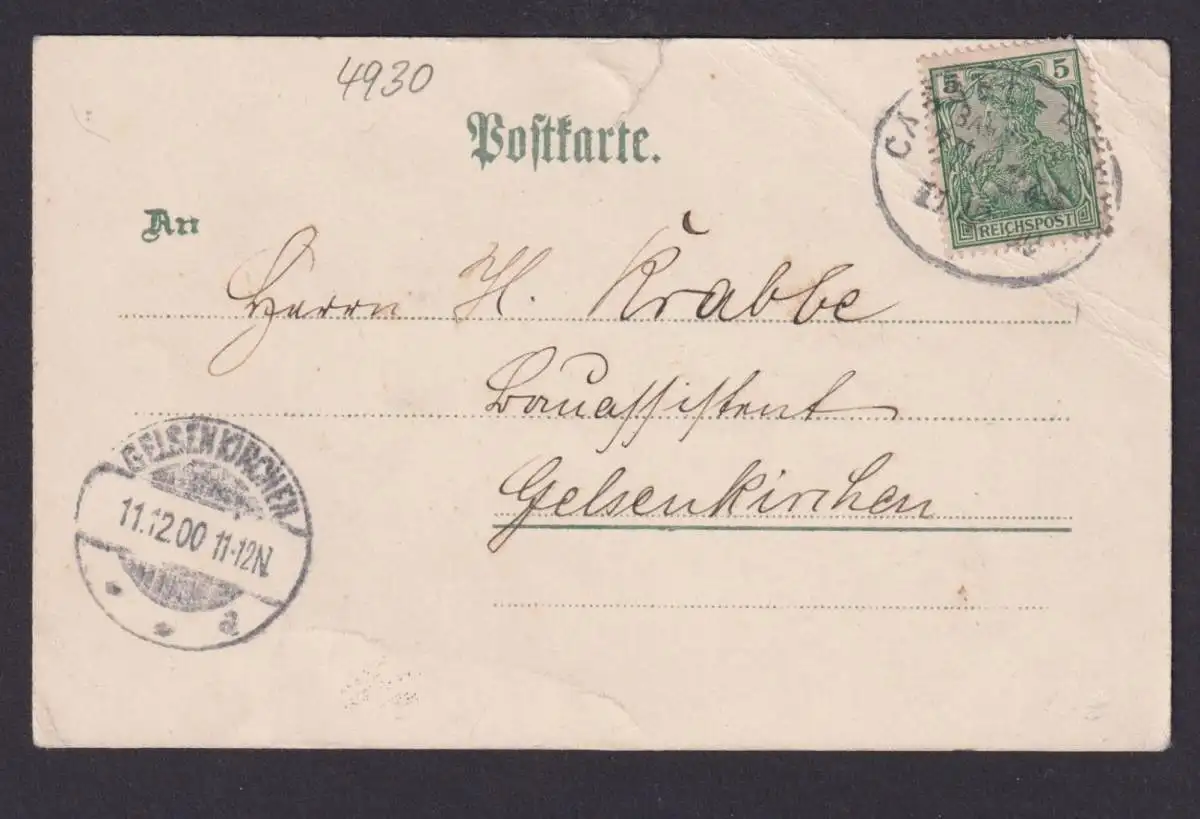 4930
Postkarte.
5 5
REICHSPOST
An
Herrn H. Krabbe
Bauassistent
Gelsenkirchen
GELSENKIRCHEN
11.12.00 11-12N.
* * a